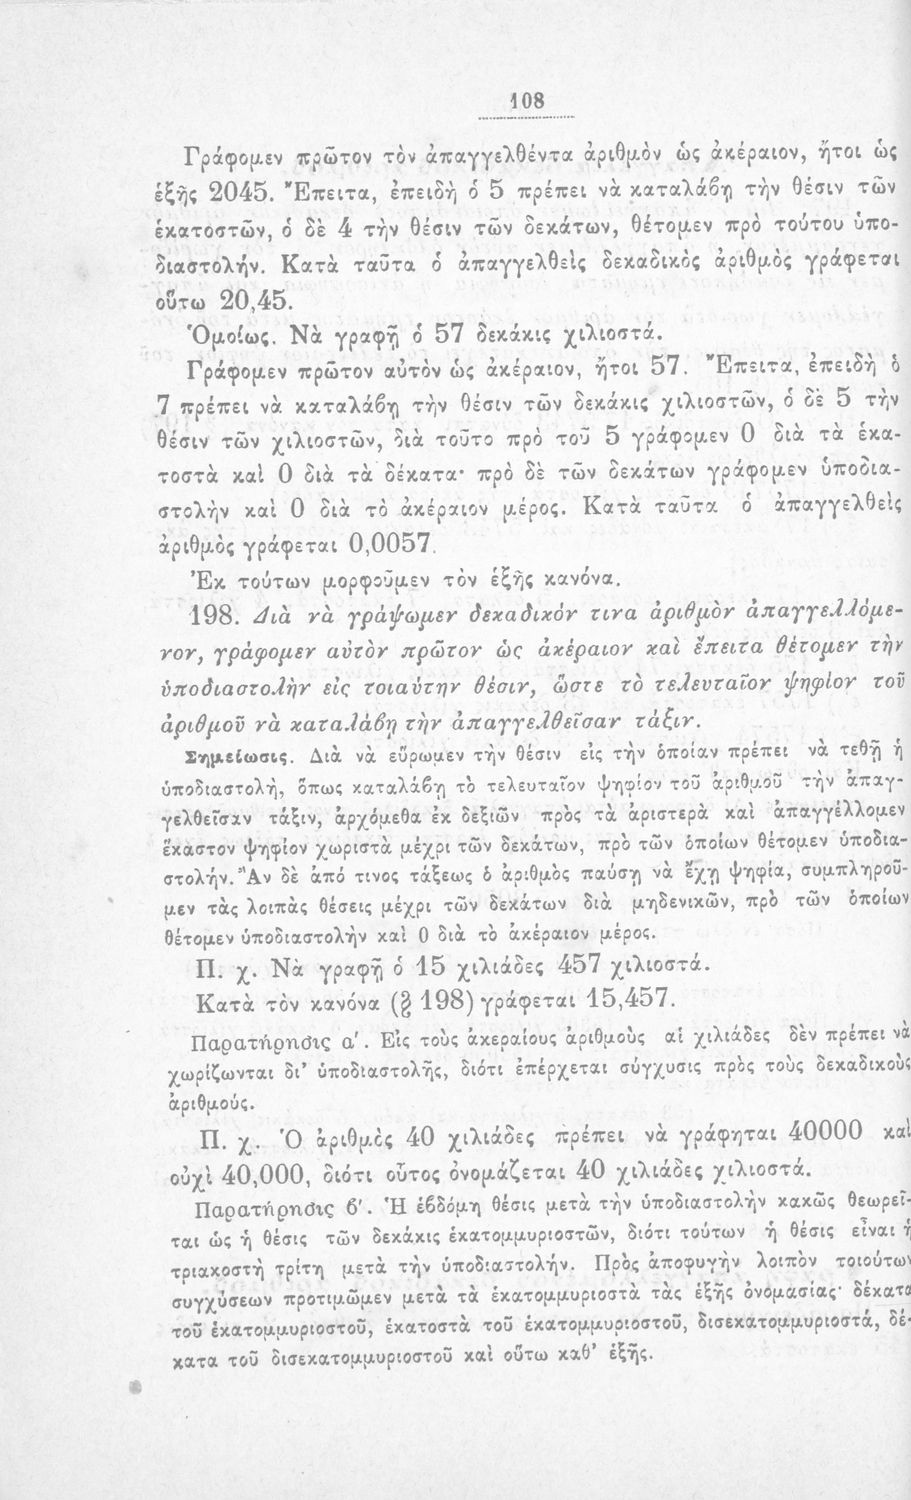 108
Γράφομεν πρῶτον τὸν ἀπαγγελθέντα ἀριθμὸν ὡς ἀκέραιον, ἤτοι ὡς
ἑξῆς 2045. Ἔπειτα, ἐπειδὴ ὁ 5 πρέπει νὰ καταλάβῃ τὴν θέσιν τῶν
ἑκατοστῶν, ὁ δὲ 4 τὴν θέσιν τῶν δεκάτων, θέτομεν πρὸ τούτου ὑπο-
διαστολήν. Κατὰ ταῦτα ὁ ἀπαγγελθεὶς δεκαδικὸς ἀριθμὸς γράφεται
οὕτω 20,45.
Ὁμοίως. Νὰ γραφῇ ὁ 57 δεκάκις χιλιοστά.
Γράφομεν πρῶτον αὐτὸν ὡς ἀκέραιον, ἤτοι 57. Ἔπειτα, ἐπειδὴ ὁ
7 πρέπει νὰ καταλάβῃ τὴν θέσιν τῶν δεκάκις χιλιοστῶν, ὁ δὲ 5 τὴν
θέσιν τῶν χιλιοστῶν, διὰ τοῦτο πρὸ τοῦ 5 γράφομεν 0 διὰ τὰ ἑκα-
τοστὰ καὶ 0 διὰ τὰ δέκατα· πρὸ δὲ τῶν δεκάτων γράφομεν ὑποδια-
στολὴν καὶ 0 διὰ τὸ ἀκέραιον μέρος. Κατὰ ταῦτα ὁ ἀπαγγελθεὶς
ἀριθμὸς γράφεται 0,0057.
Ἐκ τούτων μορφοῦμεν τὸν ἑξῆς κανόνα.
198. Διὰ νὰ γράψωμεν δεκαδικόν τινα ἀριθμὸν ἀπαγγελλόμε-
νον, γράφομεν αὐτὸν πρῶτον ὡς ἀκέραιον καὶ ἔπειτα θέτομεν τὴν
ὑποδιαστολὴν εἰς τοιαύτην θέσιν, ὥστε τὸ τελευταῖον ψηφίον τοῦ
ἀριθμοῦ νὰ καταλάβῃ τὴν ἀπαγγελθεῖσαν τάξιν.
Σημείωσις. Διὰ νὰ εὕρωμεν τὴν θέσιν εἰς τὴν ὁποίαν πρέπει νὰ τεθῇ ἡ
ὑποδιαστολή, ὅπως καταλάβῃ τὸ τελευταῖον ψηφίον τοῦ ἀριθμοῦ τὴν ἀπαγ-
γελθεῖσαν τάξιν, ἀρχόμεθα ἐκ δεξιῶν πρὸς τὰ ἀριστερὰ καὶ ἀπαγγέλλομεν
ἕκαστον ψηφίον χωριστὰ μέχρι τῶν δεκάτων, πρὸ τῶν ὁποίων θέτομεν ὑποδια-
στολήν. Ἂν δὲ ἀπό τινος τάξεως ὁ ἀριθμὸς παύσῃ νὰ ἔχῃ ψηφία, συμπληροῦ-
μεν τὰς λοιπὰς θέσεις μέχρι τῶν δεκάτων διὰ μηδενικῶν, πρὸ τῶν ὁποίων
θέτομεν ὑποδιαστολὴν καὶ 0 διὰ τὸ ἀκέραιον μέρος.
Π. χ. Νὰ γραφῇ ὁ 15 χιλιάδες 457 χιλιοστά.
Κατὰ τὸν κανόνα (§ 198) γράφεται 15,457.
Παρατήρησις α΄. Εἰς τοὺς ἀκεραίους ἀριθμοὺς αἱ χιλιάδες δὲν πρέπει νὰ
χωρίζωνται δι' ὑποδιαστολῆς, διότι ἐπέρχεται σύγχυσις πρὸς τοὺς δεκαδικοὺς
ἀριθμούς.
Π. χ. Ὁ ἀριθμὸς 40 χιλιάδες πρέπει νὰ γράφηται 40000 καὶ
οὐχὶ 40,000, διότι οὗτος ὀνομάζεται 40 χιλιάδες χιλιοστά.
Παρατήρησις β΄. Ἡ ἑβδόμη θέσις μετὰ τὴν ὑποδιαστολὴν κακῶς θεωρεῖ-
ται ὡς ἡ θέσις τῶν δεκάκις ἑκατομμυριοστῶν, διότι τούτων ἡ θέσις εἶναι ἡ
τριακοστὴ τρίτη μετὰ τὴν ὑποδιαστολήν. Πρὸς ἀποφυγὴν λοιπὸν τοιούτων
συγχύσεων προτιμῶμεν μετὰ τὰ ἑκατομμυριοστὰ τὰς ἑξῆς ὀνομασίας· δέκατα
τοῦ ἑκατομμυριοστοῦ, ἑκατοστὰ τοῦ ἑκατομμυριοστοῦ, δισεκατομμυριοστά, δέ-
κατα τοῦ δισεκατομμυριοστοῦ καὶ οὕτω καθ' ἑξῆς.